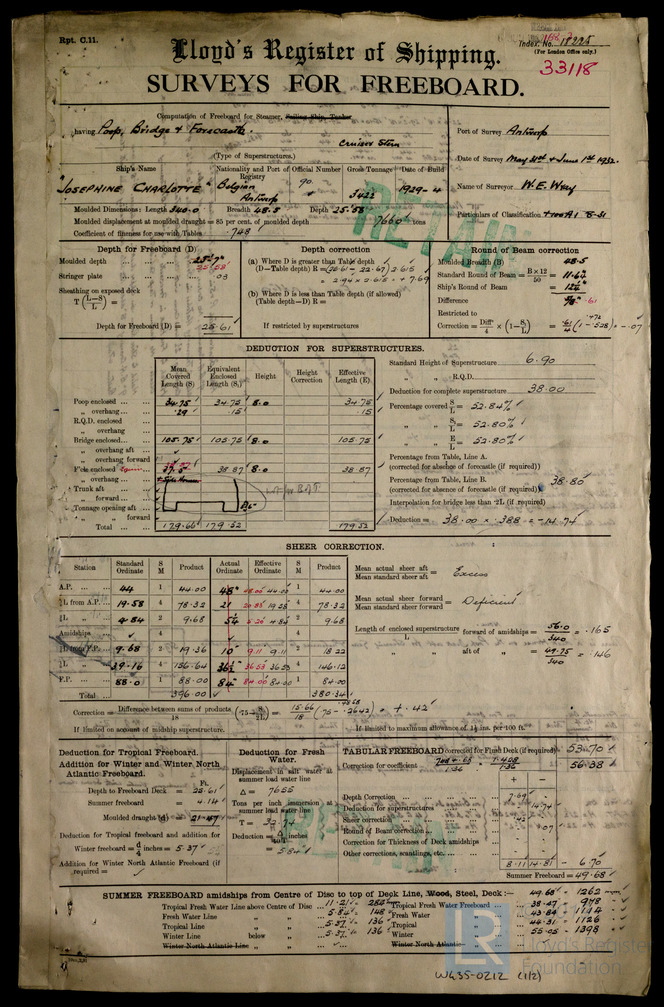 Rpt. C.11.
Index. No. 18225
(For London Office only.)
33118
Lloyd's Register of Shipping.
SURVEYS FOR FREEBOARD.
Computation of Freeboard for Steamer, Sailing Ship, Tanker
having Poop, Bridge & Forecastle.
Cruiser Stern
(Type of Superstructures.)
Port of Survey Antwerp
Date of Survey May 31st & June 1st 1932.
Name of Surveyor W.E. Wray
Particulars of Classification +100A1 8-31
Ship's Name Nationality and Port of Registry Official Number Gross Tonnage Date of Build
"JOSEPHINE CHARLOTTE" Belgian Antwerp 90 3422 1929-4
Moulded Dimensions: Length 340.0 Breadth 48.5 Depth 25.58
Moulded displacement at moulded draught = 85 per cent. of moulded depth 7660 tons
Coefficient of fineness for use with Tables .748
RETAIN
Depth for Freeboard (D)
Moulded depth ... 25.58
Stringer plate ... .03
Sheathing on exposed deck
T (L-S/L) =
Depth for Freeboard (D) = 25.61
Depth correction
(a) Where D is greater than Table depth
(D-Table depth) R = (25.61 - 22.67) 2.615
= 2.94 x 2.615 = + 7.69
(b) Where D is less than Table depth (if allowed)
(Table depth-D) R =
If restricted by superstructures
Round of Beam correction
Moulded Breadth (B) 48.5
Standard Round of Beam = B x 12/50 = 11.64
Ship's Round of Beam =
Difference .61
Restricted to
Correction = Diff/4 x (1-S1/L) = .61/4 (1-.528) = -.07
DEDUCTION FOR SUPERSTRUCTURES.
Mean Covered Length (S) Equivalent Enclosed Length (S1) Height Height Correction Effective Length (E)
Poop enclosed ... 34.75 34.75 8.0 34.75
" overhang ... .29 .15 .15
R.Q.D. enclosed
" overhang
Bridge enclosed ... 105.75 105.75 8.0 105.75
" overhang aft
" overhang forward
F'cle enclosed 38.87 8.0 38.87
" overhang
Trunk aft
" forward
Tonnage opening aft
" " forward
Total ... 179.66 179.52 179.52
Standard Height of Superstructure 6.90
" " R.Q.D.
Deduction for complete superstructure 38.00
Percentage covered S/L = 52.84%
" " S1/L = 52.80%
" " E/L = 52.80%
Percentage from Table, Line A.
(corrected for absence of forecastle (if required))
Percentage from Table, Line B. 38.80
(corrected for absence of forecastle (if required))
Interpolation for bridge less than .2L (if required)
Deduction = 38.00 x .388 = -14.74
SHEER CORRECTION.
Station Standard Ordinate S M Product Actual Ordinate Effective Ordinate S M Product
A.P. 44 1 44.00 48" 48.00 44.00 1 44.00
L from A.P. 19.58 4 78.32 21 20.85 19.58 4 78.32
L " 4.84 2 9.68 5¼ 5.26 4.84 2 9.68
Amidships
L from F.P. 9.68 2 19.36 10 9.11 9.11 2 18.22
L " 39.16 4 156.64 36½ 36.53 36.53 4 146.12
F.P. 88.0 1 88.00 84" 84.00 84.00 1 84.00
Total ... 396.00 380.34
Mean actual sheer aft / Mean standard sheer aft = Excess
Mean actual sheer forward / Mean standard sheer forward = Deficient
Length of enclosed superstructure / L forward of amidships = 56.0/340 = .165
" " aft of " = 49.75/340 = .146
Correction = Difference between sums of products/18 (.75 - S/2L) = 15.66/18 (.75 - .2642) = + .42
If limited on account of midship superstructure.
If limited to maximum allowance of 1½ ins. per 100 ft.
Deduction for Tropical Freeboard.
Addition for Winter and Winter North Atlantic Freeboard.
Ft.
Depth to Freeboard Deck = 25.61
Summer freeboard = 4.14
Moulded draught (d) = 21.47
Deduction for Tropical freeboard and addition for
Winter freeboard = d/4 inches = 5.37
Addition for Winter North Atlantic Freeboard (if required) =
Deduction for Fresh Water.
Displacement in salt water at summer load water line
Δ = 7655
Tons per inch immersion at summer load water line
T = 32.74
Deduction = Δ/40T inches
= 5.84
TABULAR FREEBOARD corrected for Flush Deck (if required) 53.70
Correction for coefficient .748+.68/1.36 = 1.428/1.36 56.38
+ -
Depth Correction ... 7.69
Deduction for superstructures ... 14.74
Sheer correction ... .42
Round of Beam correction ... .07
Correction for Thickness of Deck amidships
Other corrections, scantlings, etc.
8.11 14.81 - 6.70
Summer Freeboard = 49.68
SUMMER FREEBOARD amidships from Centre of Disc to top of Deck Line, Wood, Steel, Deck:-
Tropical Fresh Water Line above Centre of Disc ... 11.21
Fresh Water Line " " 5.84 = 148
Tropical Line " " 5.37 = 136
Winter Line below " 5.37 = 136
Winter North Atlantic Line " "
49.68 - 1262
Tropical Fresh Water Freeboard 38.47 - 978
Fresh Water " 43.84 - 1114
Tropical " 44.31 - 1126
Winter " 55.05 - 1398
Winter North Atlantic
LR
Lloyd's Register
Foundation
W435-0212 (1/2)